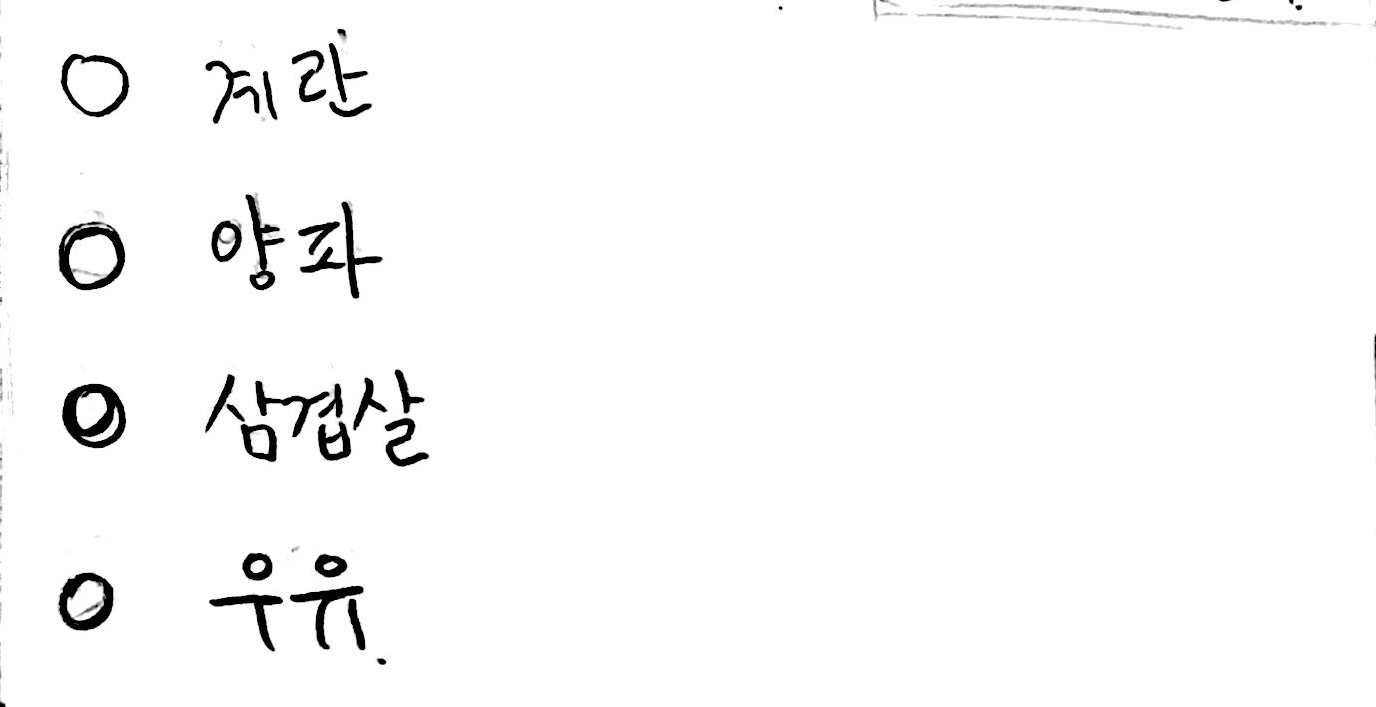 계란
양파
삼겹살
우유.